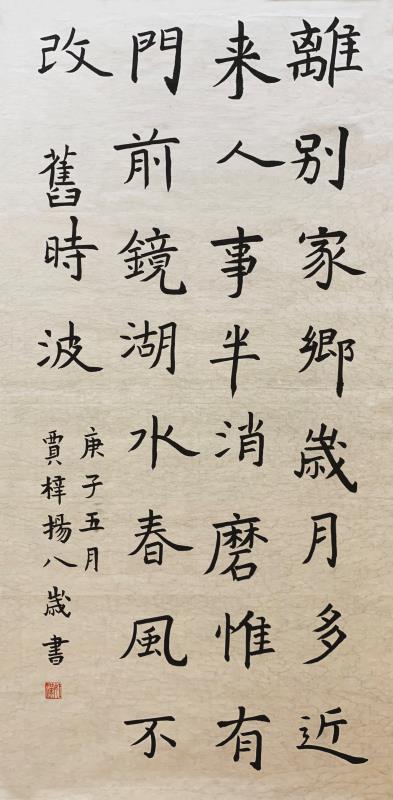 離别家鄉歲月多近
来人事半消磨惟有
門前鏡湖水春風不
改舊時波
庚子五月
賈梓揚八歲書